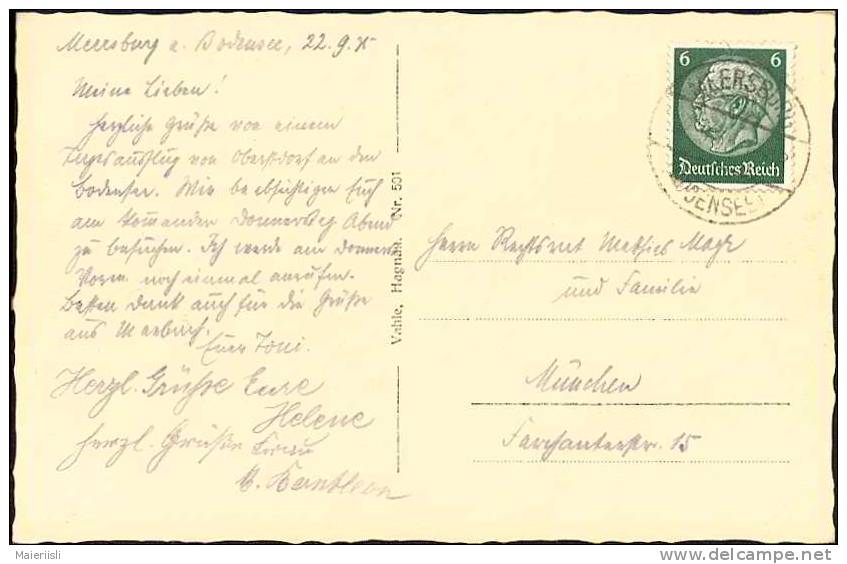 Meersburg a. Bodensee, 22.9.35
Meine Lieben!
Herzliche Grüße von einem
Tagesausflug von Oberstdorf an den
Bodensee. Wir beabsichtigen Euch
am kommenden Donnerstag Abend
zu besuchen. Ich werde am Donnerst
Vorm. noch einmal anrufen.
Besten Dank auch für die Grüße
aus
Euer Toni.
Herzl. Grüsse Eure
Helene
Herzl. Grüße
Vahle, Hagnau. Nr. 501
6 6
Deutsches Reich
MEERSBURG
BODENSEE
Herrn Rechtsrat
und Familie
München
15
Maieriisli
delcampe.net